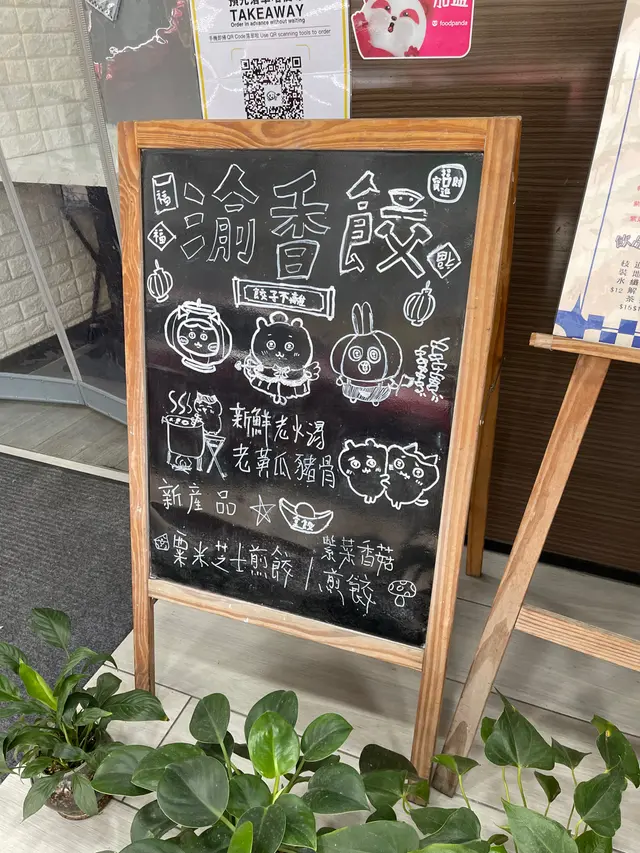 預先落單取餐
TAKEAWAY
Order in advance without waiting
手機掃描 QR Code 落單啦 Use QR scanning tools to order
加盟
foodpanda
福
福
渝香餃
招財進寶
福
餃子不離
新鮮老火湯
老黃瓜豬骨
新産品
煎餃
粟米芝士煎餃 / 紫菜香菇
煎餃
$12